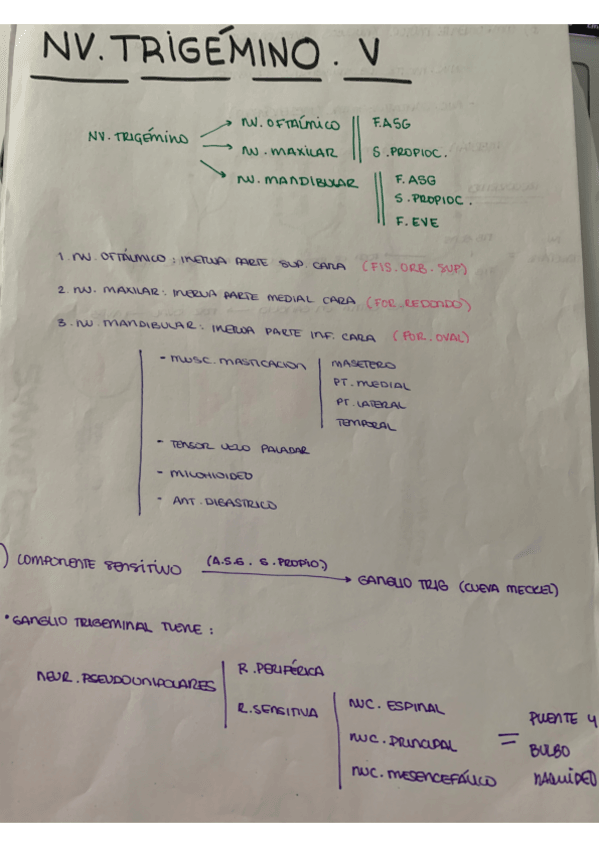 NV. TRIGÉMINO. V
NV. TRIGÉMINO
NV. OFTÁLMICO
NV. MAXILAR
F. ASG
S. PROPIOC.
NV. MANDIBULAR
F. ASG
S. PROPIOC.
F. EVE
1. NV. OFTÁLMICO: INERVA PARTE SUP. CARA (FIS. ORB. SUP)
2. NV. MAXILAR: INERVA PARTE MEDIAL CARA (FOR. REDONDO)
3. NV. MANDIBULAR: INERVA PARTE INF. CARA (FOR. OVAL)
- MUSC. MASTICACION
MASETERO
PT. MEDIAL
PT. LATERAL
TEMPORAL
- TENSOR VELO PALADAR
- MILOHIOIDEO
- ANT. DIGASTRICO
) COMPONENTE SENSITIVO (A.S.G. S. PROPIO.) GANGLIO TRIG (CUEVA MECKEL)
• GANGLIO TRIGEMINAL TIENE:
NEUR. PSEUDOUNIPOLARES
R. PERIFÉRICA
R. SENSITIVA
NUC. ESPINAL
NUC. PRINCIPAL
NUC. MESENCEFÁLICO
= PUENTE Y
BULBO
RAQUIDEO